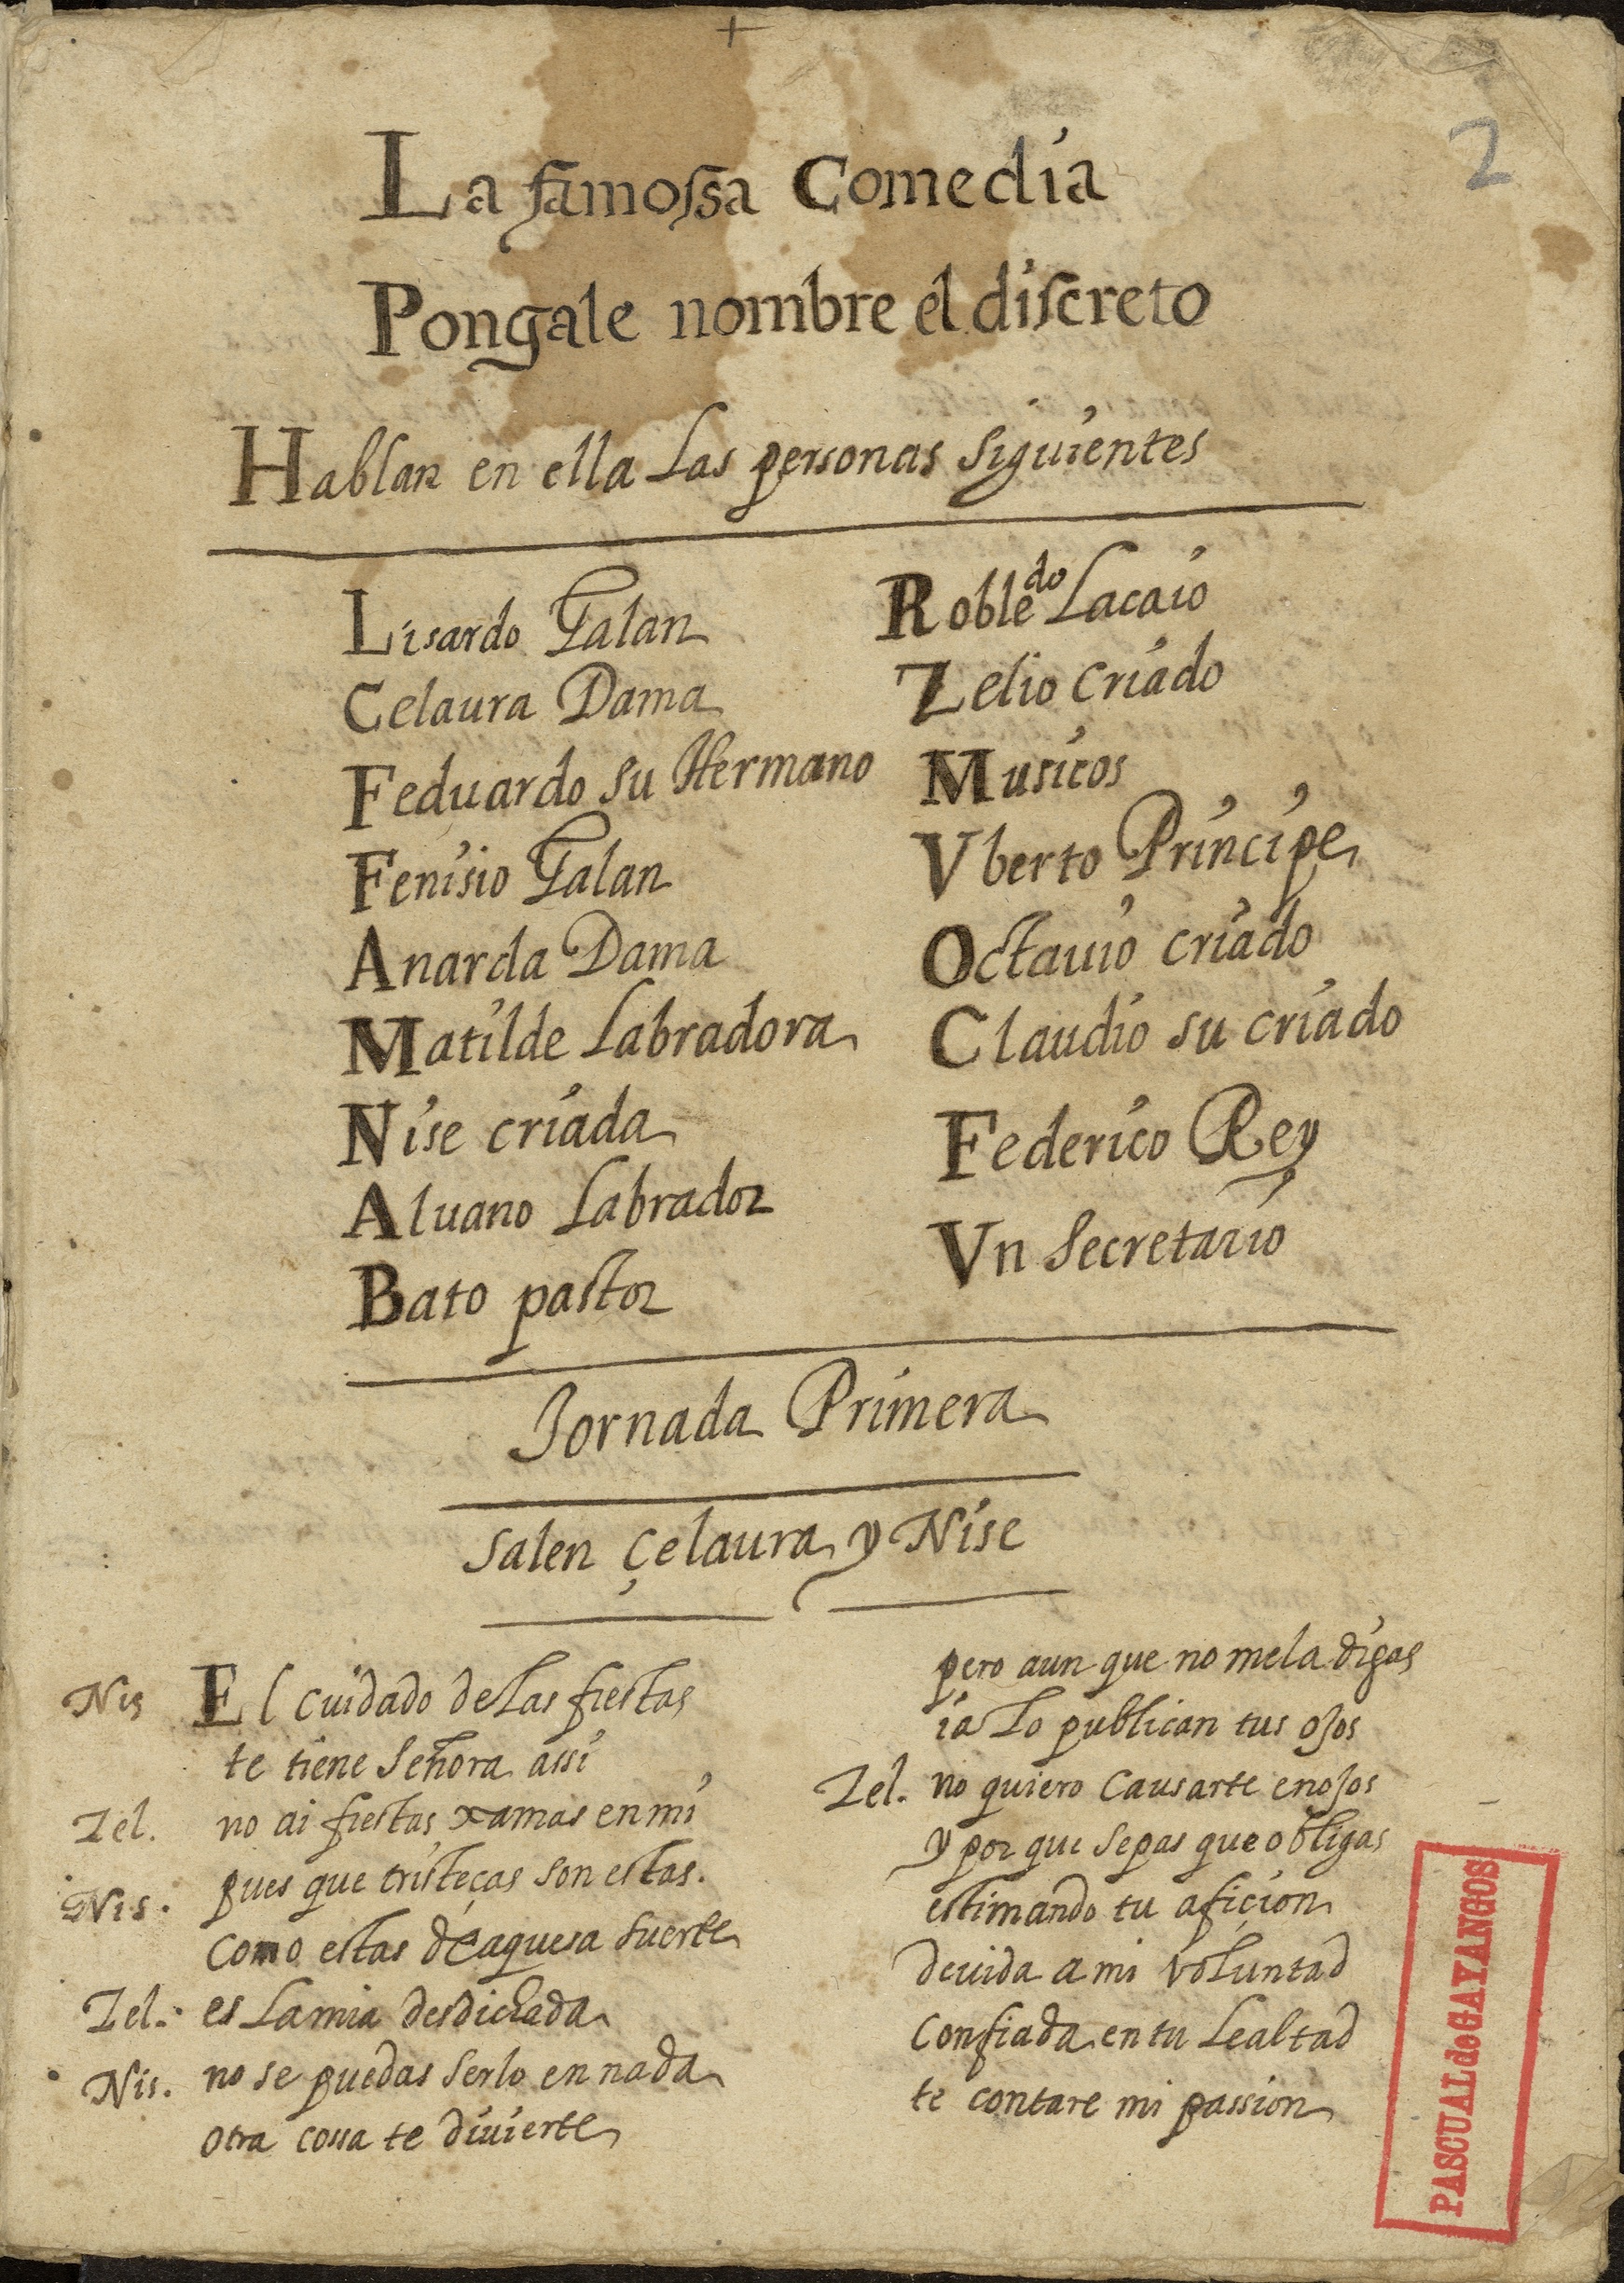 2
La famossa Comedia
Pongale nombre el discreto
Hablan en ella Las personas siguientes
Lisardo Galan
Celaura Dama
Feduardo su Hermano
Fenisio Galan
Anarda Dama
Matilde Labradora
Nise criada
Aluano Labrador
Bato pastor
Robledo Lacaio
Zelio criado
Musicos
Vberto Principe
Octauio criado
Claudio su criado
Federico Rey
Vn Secretario
Jornada Primera
Salen Çelaura y Nise
Nis El cuidado de Las fiestas
te tiene Señora assi
Zel. no ai fiestas xamas en mi
pues que tristeças son estas.
Nis. Como estas de aquesa suerte
Zel. es La mia desdichada
Nis. no se puedas serlo en nada
otra cossa te diuierte
pero aun que no me la digas
ia Lo publican tus ojos
Zel. no quiero Causarte enojos
y por que sepas que obligas
estimando tu afiçion
deuida a mi voluntad
Confiada en tu Lealtad
te contare mi passion
PASCUAL de GAYANGOS